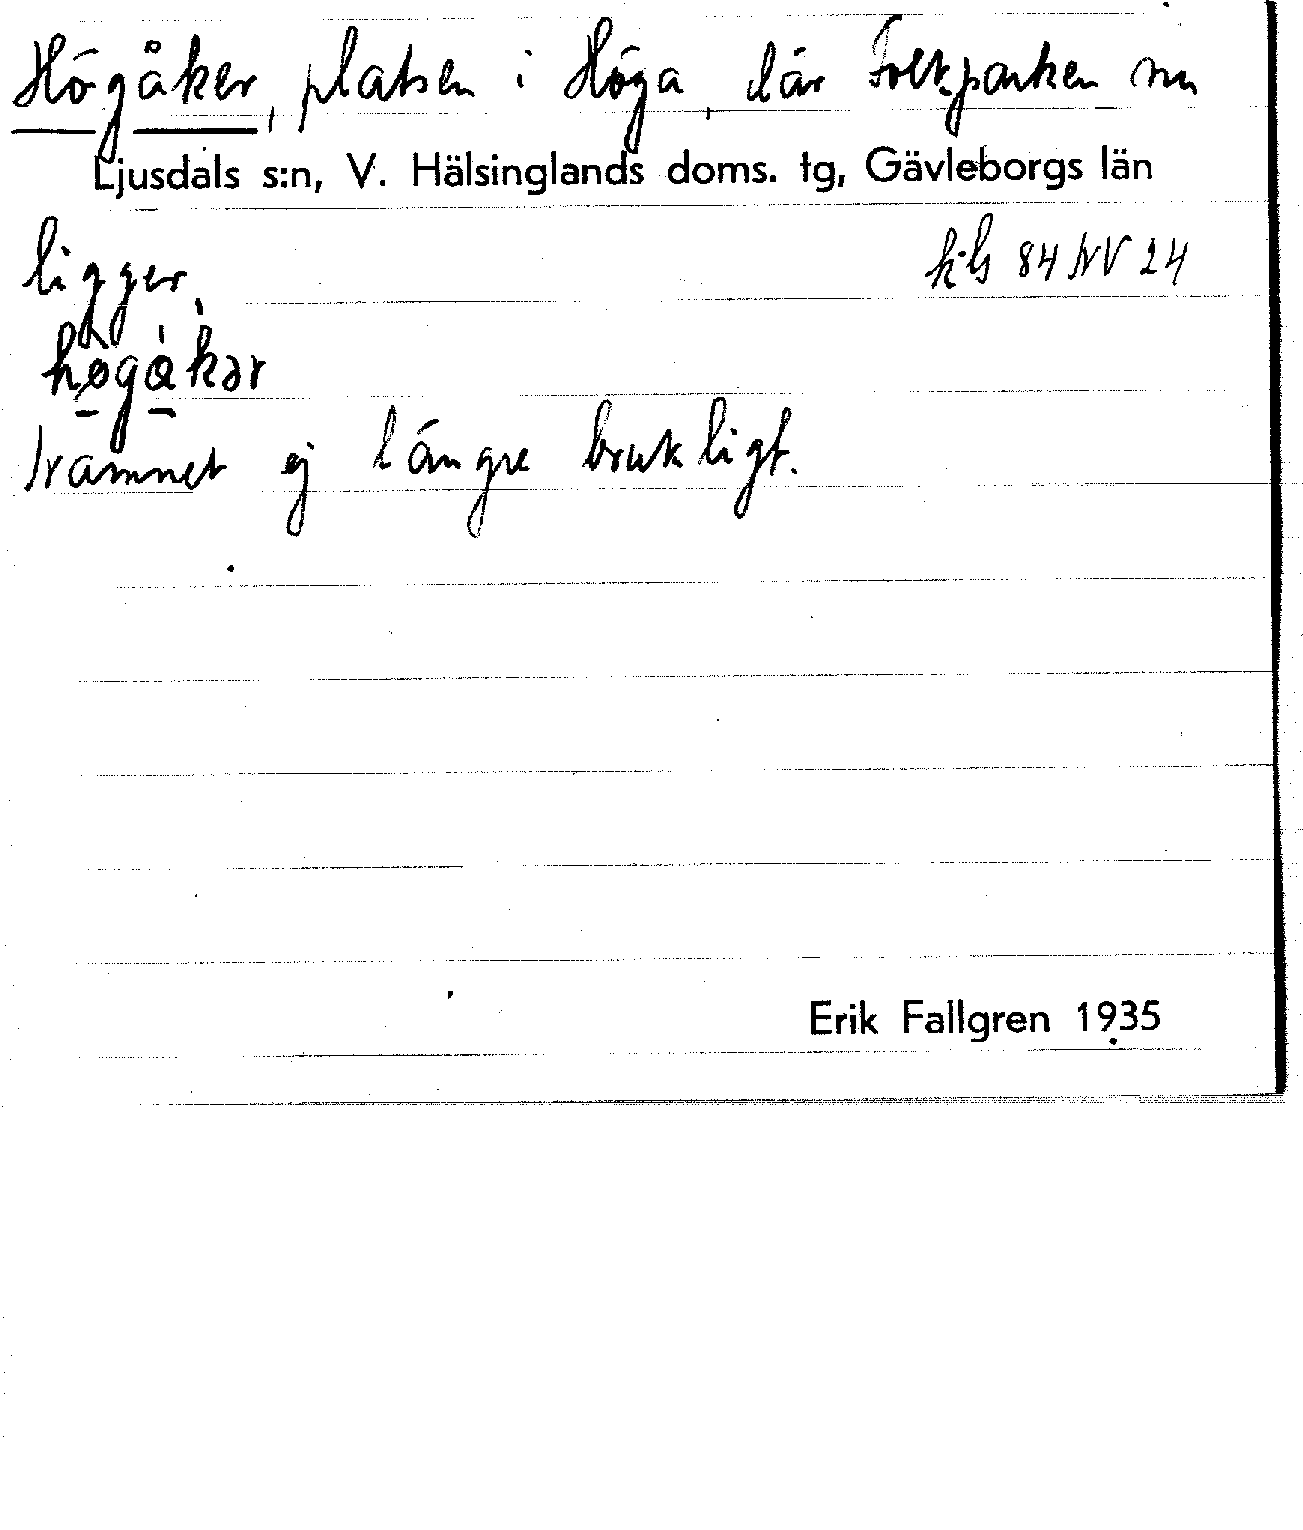 Högåker, platsen i Höga, där Folkparken nu
Ljusdals s:n, V. Hälsinglands doms. tg, Gävleborgs län
ligger.
k-bl 84 NV 24
hø̀gå̀kər
Namnet ej längre brukligt.
Erik Fallgren 1935